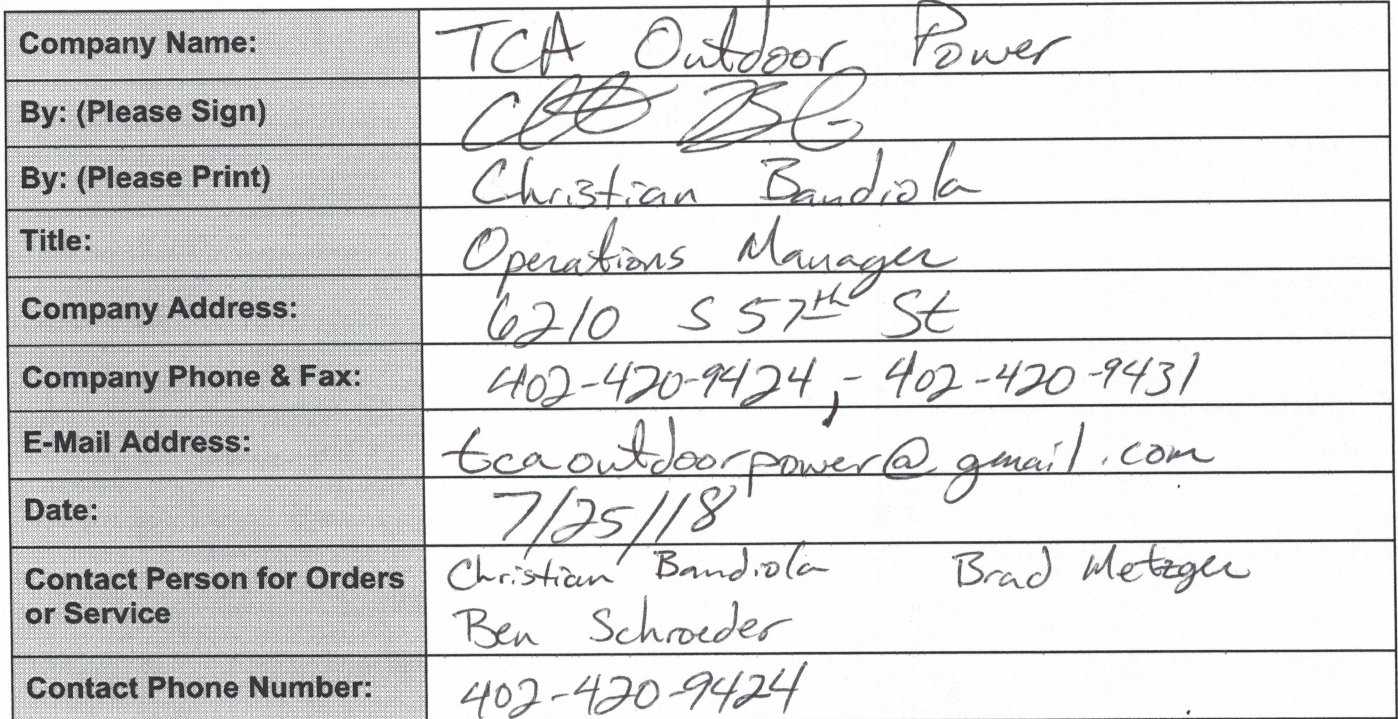 Company Name: TCA Outdoor Power
By: (Please Sign)
By: (Please Print) Christian Bandiola
Title: Operations Manager
Company Address: 6210 S 57th St
Company Phone & Fax: 402-420-9424, - 402-420-9431
E-Mail Address: tcaoutdoorpower@gmail.com
Date: 7/25/18
Contact Person for Orders Christian Bandiola Brad Metzger
or Service Ben Schroeder
Contact Phone Number: 402-420-9424